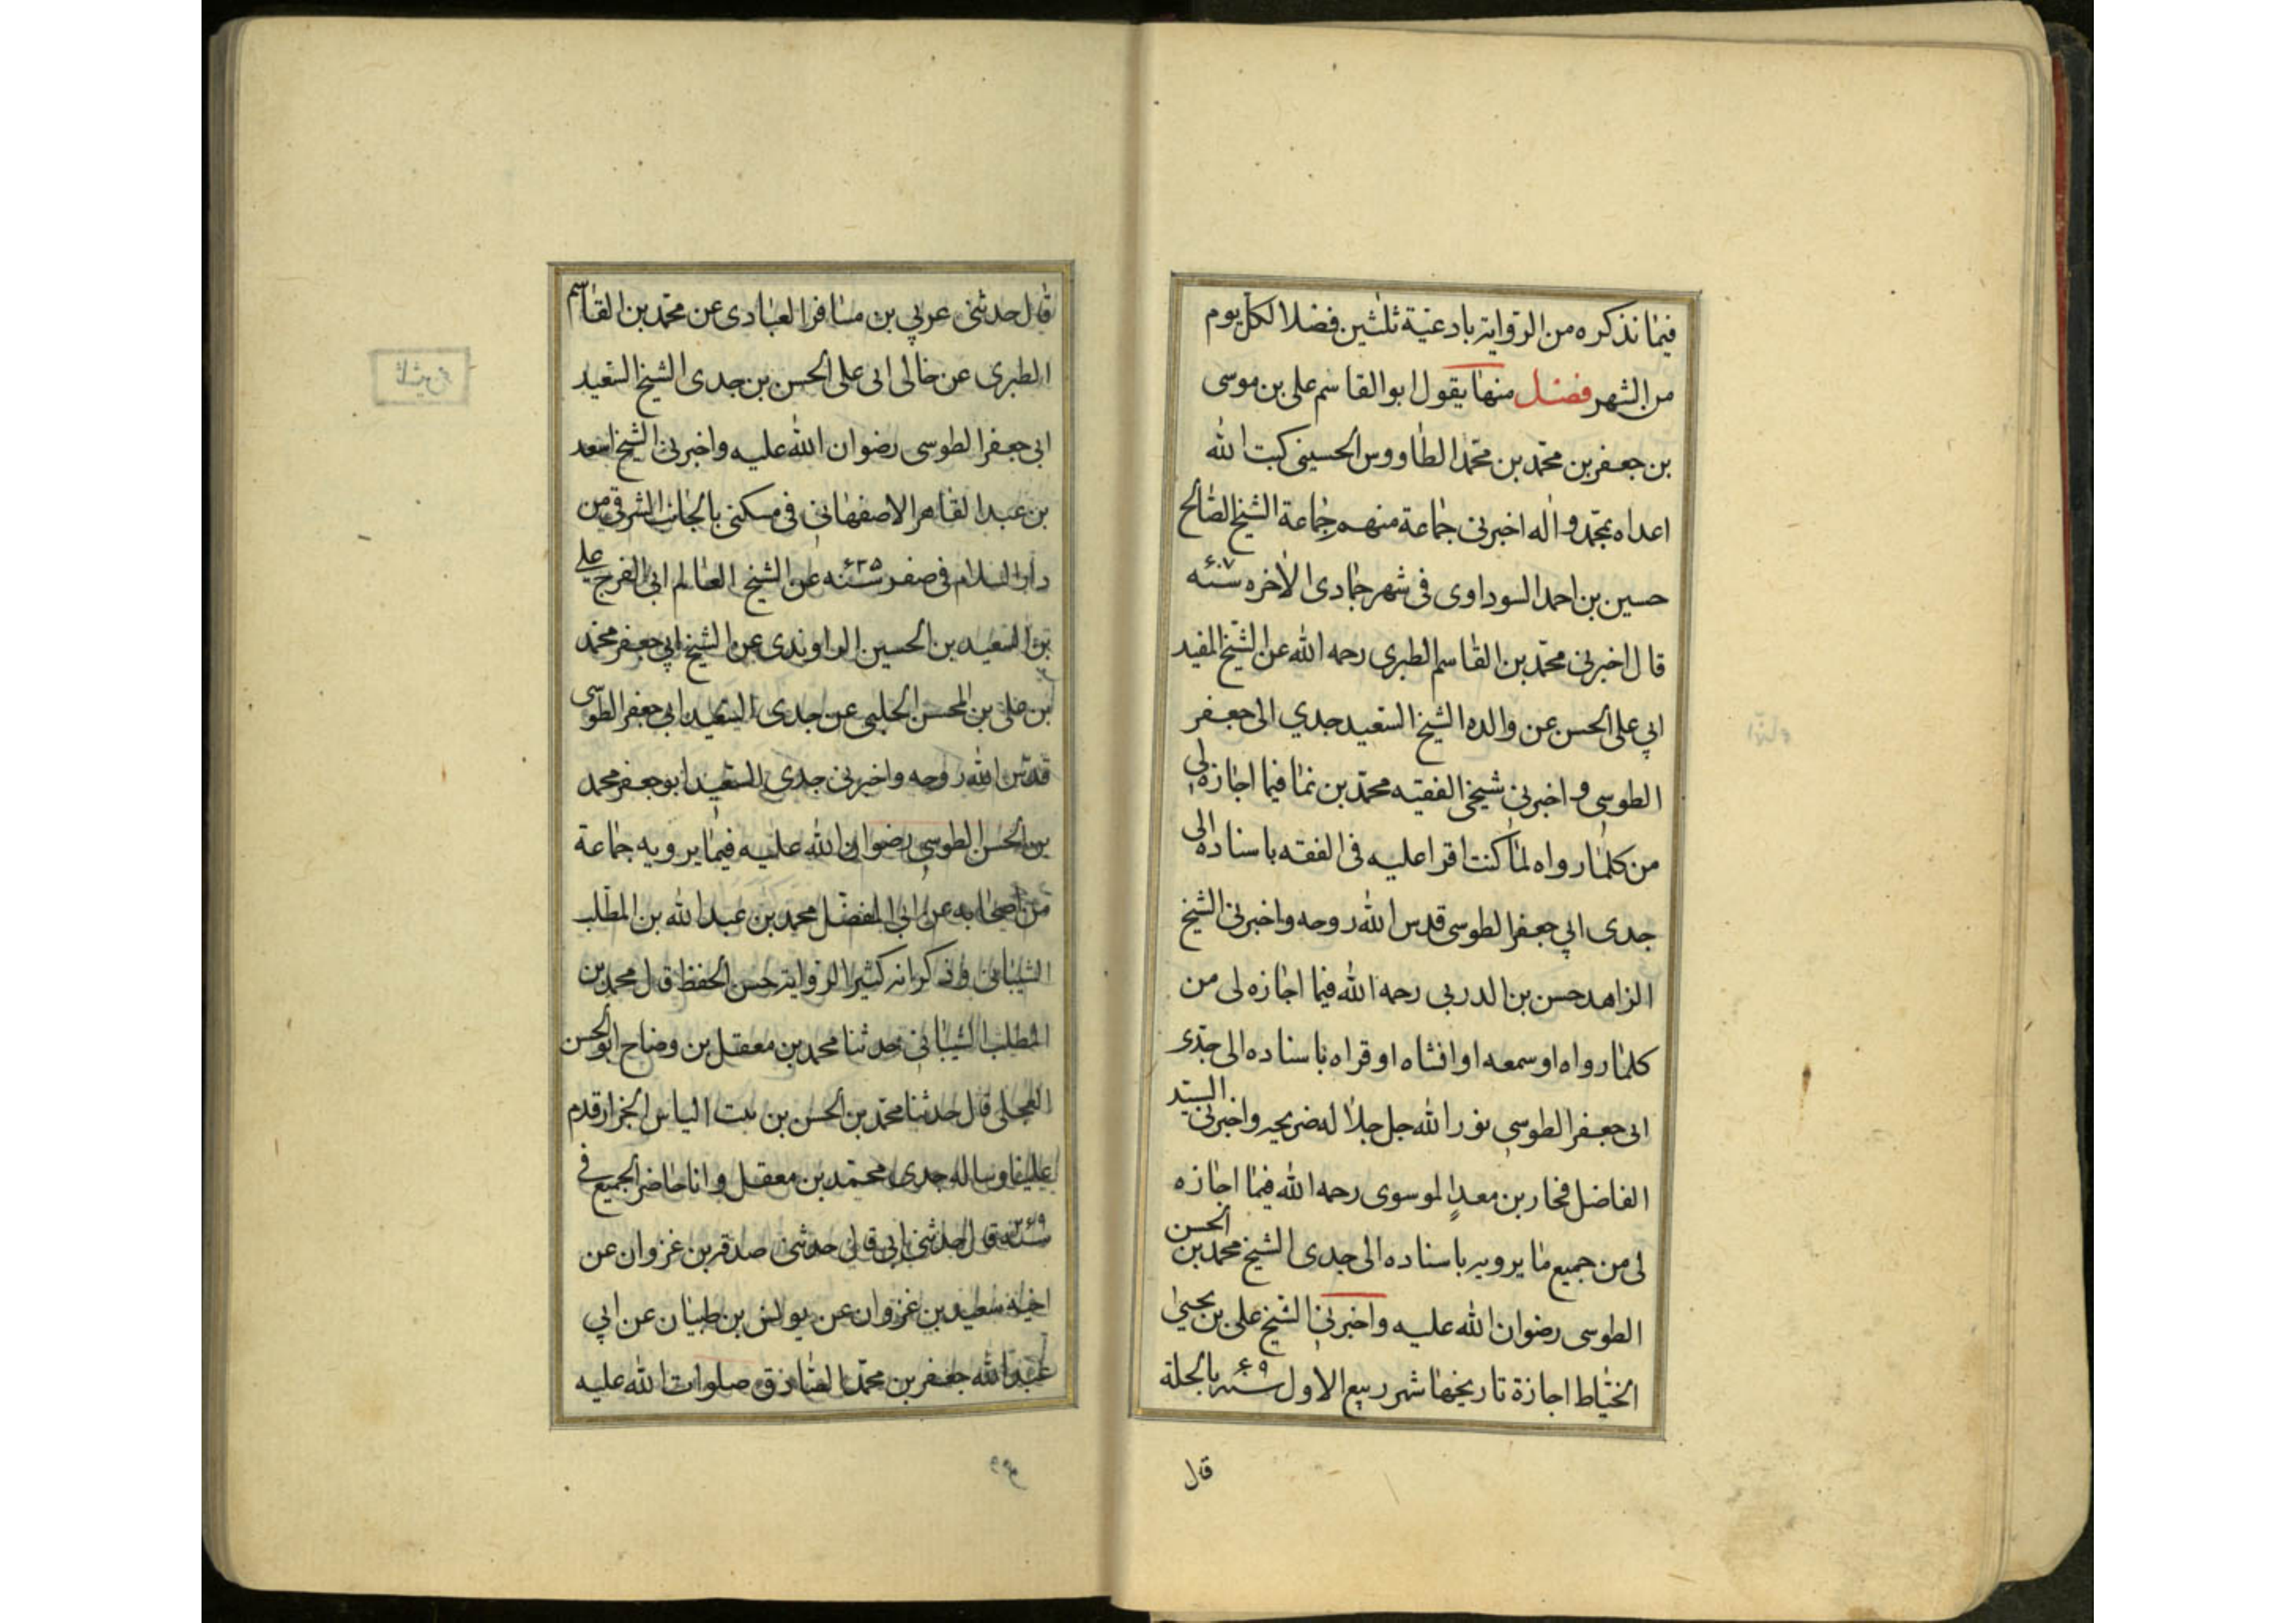 فیما نذکره من الروایة بادعیة ثلثین فضلا لکل یوم
من الشهر فصل منها یقول ابو القاسم علی بن موسی
بن جعفر بن محمد بن محمد الطاووس الحسینی کبت الله
اعداه بمحمد واله اخبرنی جماعة منهم جماعة الشیخ الصالح
حسین بن احمد السوداوی فی شهر جمادی الاخره سنه ۶۰۷
قال اخبرنی محمد بن القاسم الطبری رحمه الله عن الشیخ المفید
ابی علی الحسن عن والده الشیخ السعید جدی ابی جعفر
الطوسی و اخبرنی شیخی الفقیه محمد بن نما فیما اجازه لی
من کلما رواه لما کنت اقرا علیه فی الفقه باسناده الی
جدی ابی جعفر الطوسی قدس الله روحه واخبرنی الشیخ
الزاهد حسن بن الدربی رحمه الله فیما اجازه لی من
کلما رواه او سمعه او انشاه او قراه باسناده الی جدی
ابی جعفر الطوسی نور الله جل جلاله ضریحه واخبرنی السید
الفاضل فخار بن معد الموسوی رحمه الله فیما اجازه
لی من جمیع ما یرویه باسناده الی جدی الشیخ محمد بن الحسن
الطوسی رضوان الله علیه واخبرنی الشیخ علی بن یحیی
الخیاط اجازة تاریخها شهر ربیع الاول سنه ۶۰۹ بالحلة
قال
قال حدثنی عربی بن مسافر العبادی عن محمد بن القاسم
الطبری عن خالی ابی علی الحسن بن جدی الشیخ السعید
ابی جعفر الطوسی رضوان الله علیه واخبرنی الشیخ اسعد
بن عبد القاهر الاصفهانی فی مسکنی بالجانب الشرقی من
دار السلام فی صفر سنه ۶۳۵ عن الشیخ العالم ابی الفرج علی
بن السعید بن الحسین الراوندی عن الشیخ ابی جعفر محمد
بن علی بن المحسن الحلبی عن جدی السعید ابی جعفر الطوسی
قدس الله روحه واخبرنی جدی السعید ابو جعفر محمد
بن الحسن الطوسی رضوان الله علیه فیما یرویه جماعة
من اصحابه عن ابی المفضل محمد بن عبد الله بن المطلب
الشیبانی وذکر انه کثیر الروایة حسن الحفظ قال محمد بن
المطلب الشیبانی حدثنا محمد بن معقل بن وضاح ابو الحسن
العجلی قال حدثنا محمد بن الحسن بن بنت الیاس الخزاز قدم
علینا وساله جدی محمد بن معقل وانا حاضر الجمیع فی
سنه قال حدثنی ابی قال حدثنی صدقه بن غزوان عن
اخیه سعید بن غزوان عن یونس بن ظبیان عن ابی
عبد الله جعفر بن محمد الصادق صلوات الله علیه